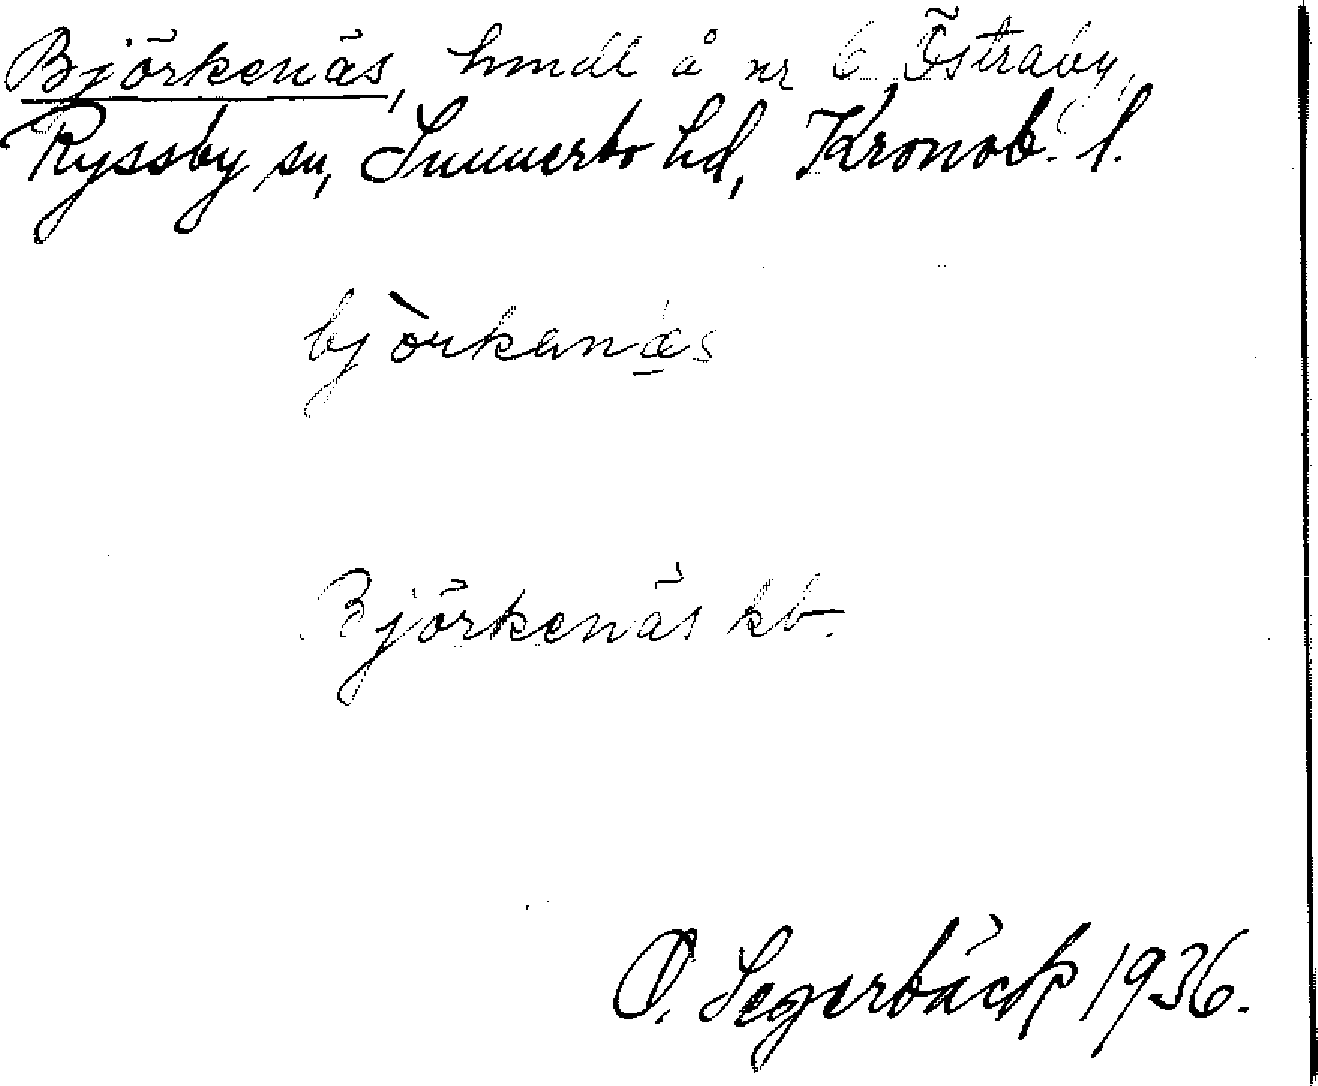 Björkenäs, hmdl å nr 6 Östraby,
Ryssby sn, Sunnerbo hd, Kronob. l.
bjòrkanæs
Björkenäs kb.
O. Segerbäck 1936.